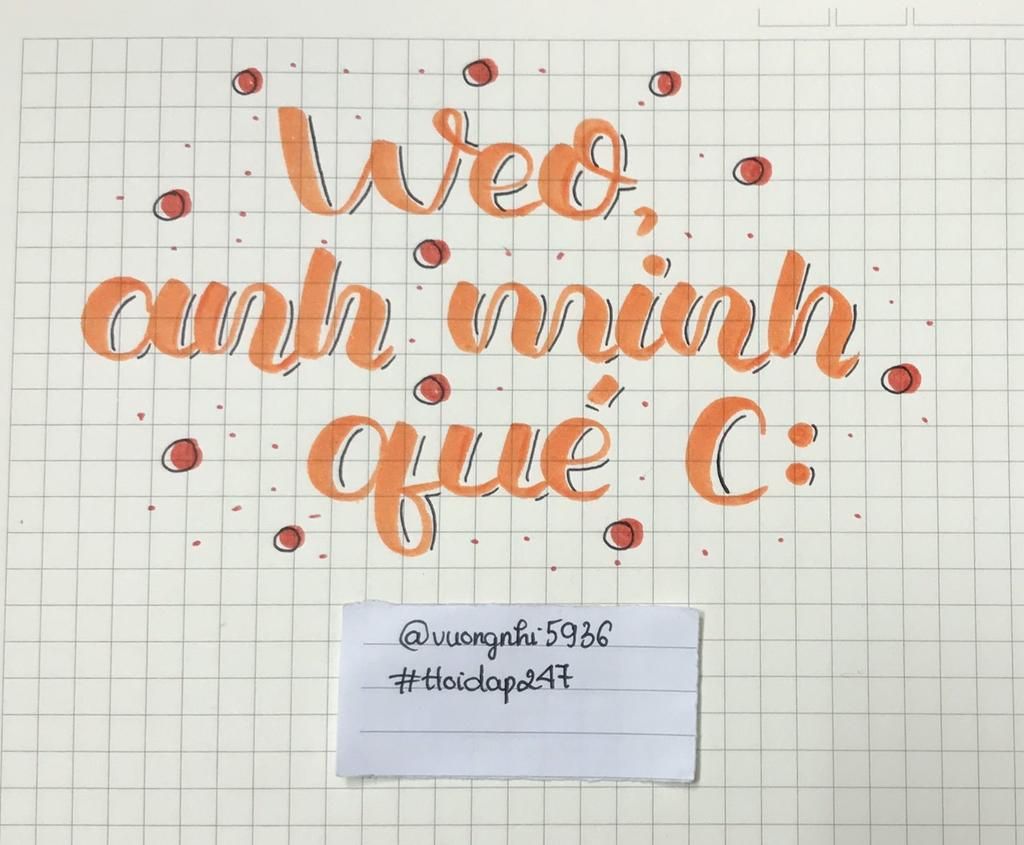 Weo,
anh minh
qué C:
@vuongnhi5936
#Hoidap247